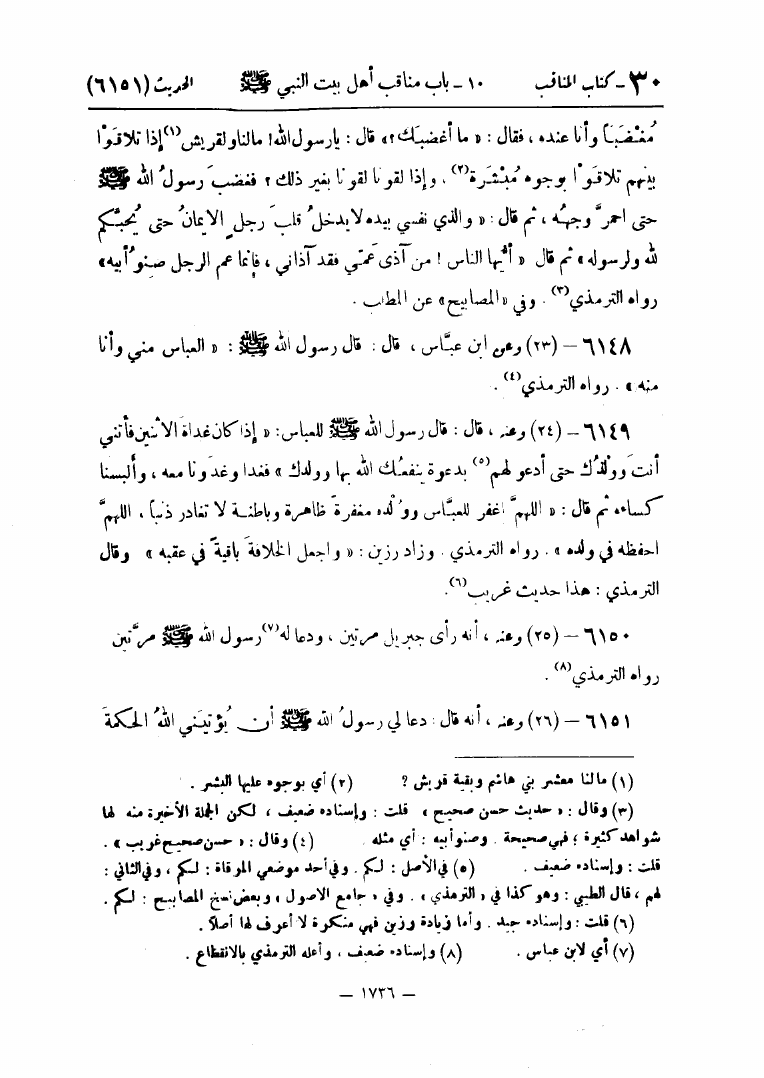 ٣٠ - كتاب المناقب ١٠ - باب مناقب أهل بيت النبي ﷺ الحديث (٦١٥١)
مُغْضَبَاً وأنا عنده ، فقال : « ما أغضبَك ؟» قال : يارسول الله! مالنا ولقريش(١) إذا تلاقَوْا
بينهم تلاقَوْا بوجوه مُبْشَرة(٢) . وإذا لقونا لقونا بغير ذلك ؟ فغضبَ رسولُ الله ﷺ
حتى احمرَّ وجهُه ، ثم قال : « والذي نفسي بيده لايدخلُ قلبَ رجلٍ الايمانُ حتى يُحبَّكم
لله ولرسوله » ثم قال « أيُّها الناس ! من آذى عمّي فقد آذاني ، فإنما عم الرجل صنوُ أبيه»
رواه الترمذي(٣) . وفي «المصابيح» عن المطلب .
٦١٤٨ - (٢٣) وعن ابن عبَّاس ، قال : قال رسول الله ﷺ : « العباس مني وأنا
منه » . رواه الترمذي(٤) .
٦١٤٩ - (٢٤) وعنه ، قال : قال رسول الله ﷺ للعباس: « إذا كان غداةَ الاثنين فأتني
أنتَ ووَلدُك حتى أدعو لهم(٥) بدعوة ينفعُك الله بها وولدك » فغدا وغدَونا معه ، وألبسنا
كساءه ثم قال : « اللهمَّ اغفر للعبَّاس ووُلده مغفرةً ظاهرة وباطنـة لا تغادر ذنباً ، اللهمَّ
احفظه في ولده » . رواه الترمذي . وزاد رزين : « واجعل الخلافةَ باقيةً في عقبه » وقال
الترمذي : هذا حديث غريب(٦).
٦١٥٠ - (٢٥) وعنه ، أنه رأى جبريل مرتين ، ودعا له(٧) رسول الله ﷺ مرَّتين
رواه الترمذي(٨) .
٦١٥١ - (٢٦) وعنه ، أنه قال : دعا لي رسولُ الله ﷺ أن يُؤتيَني اللهُ الحكمةَ
(١) مالنا معشر بني هاشم وبقية قريش ؟ (٢) أي بوجوه عليها البشر .
(٣) وقال : « حديث حسن صحيح » قلت : وإسناده ضعيف ، لكن الجملة الأخيرة منه لها
شواهد كثيرة ؛ فهي صحيحة . وصنو أبيه : أي مثله . (٤) وقال : « حسن صحيح غريب » .
قلت : وإسناده ضعيف . (٥) في الأصل : لكم . وفي أحد موضعي المرقاة : لكم ، وفي الثاني :
لهم ، قال الطيبي : وهو كذا في « الترمذي » . وفي « جامع الاصول » وبعض نسخ المصابيح : لكم .
(٦) قلت : وإسناده جيد . وأما زيادة رزين فهي منكرة لا أعرف لها أصلاً .
(٧) أي لابن عباس . (٨) وإسناده ضعيف ، وأعله الترمذي بالانقطاع .
— ١٧٣٦ —